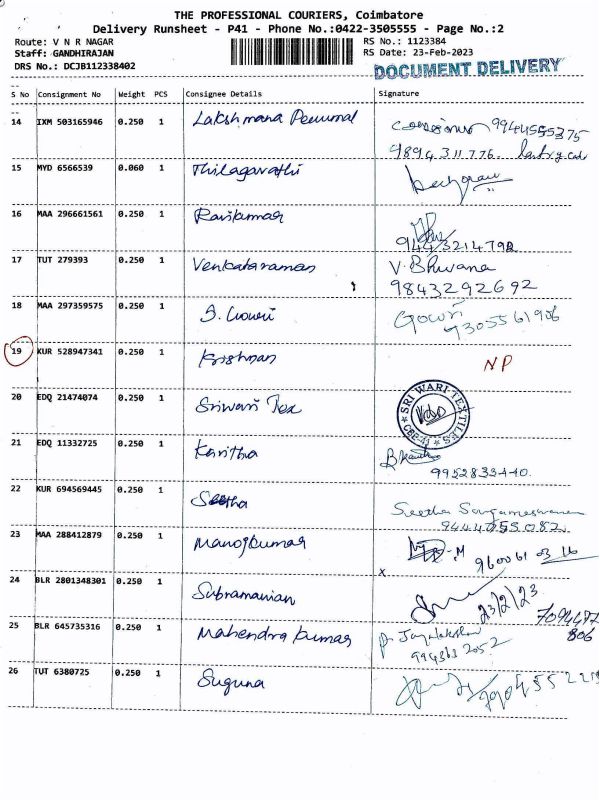 THE PROFESSIONAL COURIERS, Coimbatore
Delivery Runsheet - P41 - Phone No.:0422-3505555 - Page No.:2
Route: V N R NAGAR
RS No.: 1123384
Staff: GANDHIRAJAN
RS Date: 23-Feb-2023
DRS No.: DCJB112338402
DOCUMENT DELIVERY
S No Consignment No Weight PCS Consignee Details Signature
14 IXM 503165946 0.250 1 Lakshmana Perumal 9944555375
9894311776.
15 MYD 6566539 0.060 1 Thilagavathi
16 MAA 296661561 0.250 1 Ravikumar
17 TUT 279393 0.250 1 Venkataraman V. Bhuvana
9843292692
18 MAA 297359575 0.250 1 S. Gowri Gowri
9305561906
19 KUR 528947341 0.250 1 Krishnan NP
20 EDQ 21474074 0.250 1 Sriwari Tex SRI WARI TEXTILES CBE-41
21 EDQ 11332725 0.250 1 Kavitha
9952833440.
22 KUR 694569445 0.250 1 Seetha Seetha Sangameswaran
9444055082
23 MAA 288412879 0.250 1 Manojkumar
x
24 BLR 2801348301 0.250 1 Subramanian 23/2/23
25 BLR 645735316 0.250 1 Mahendra Kumar
26 TUT 6380725 0.250 1 Suguna